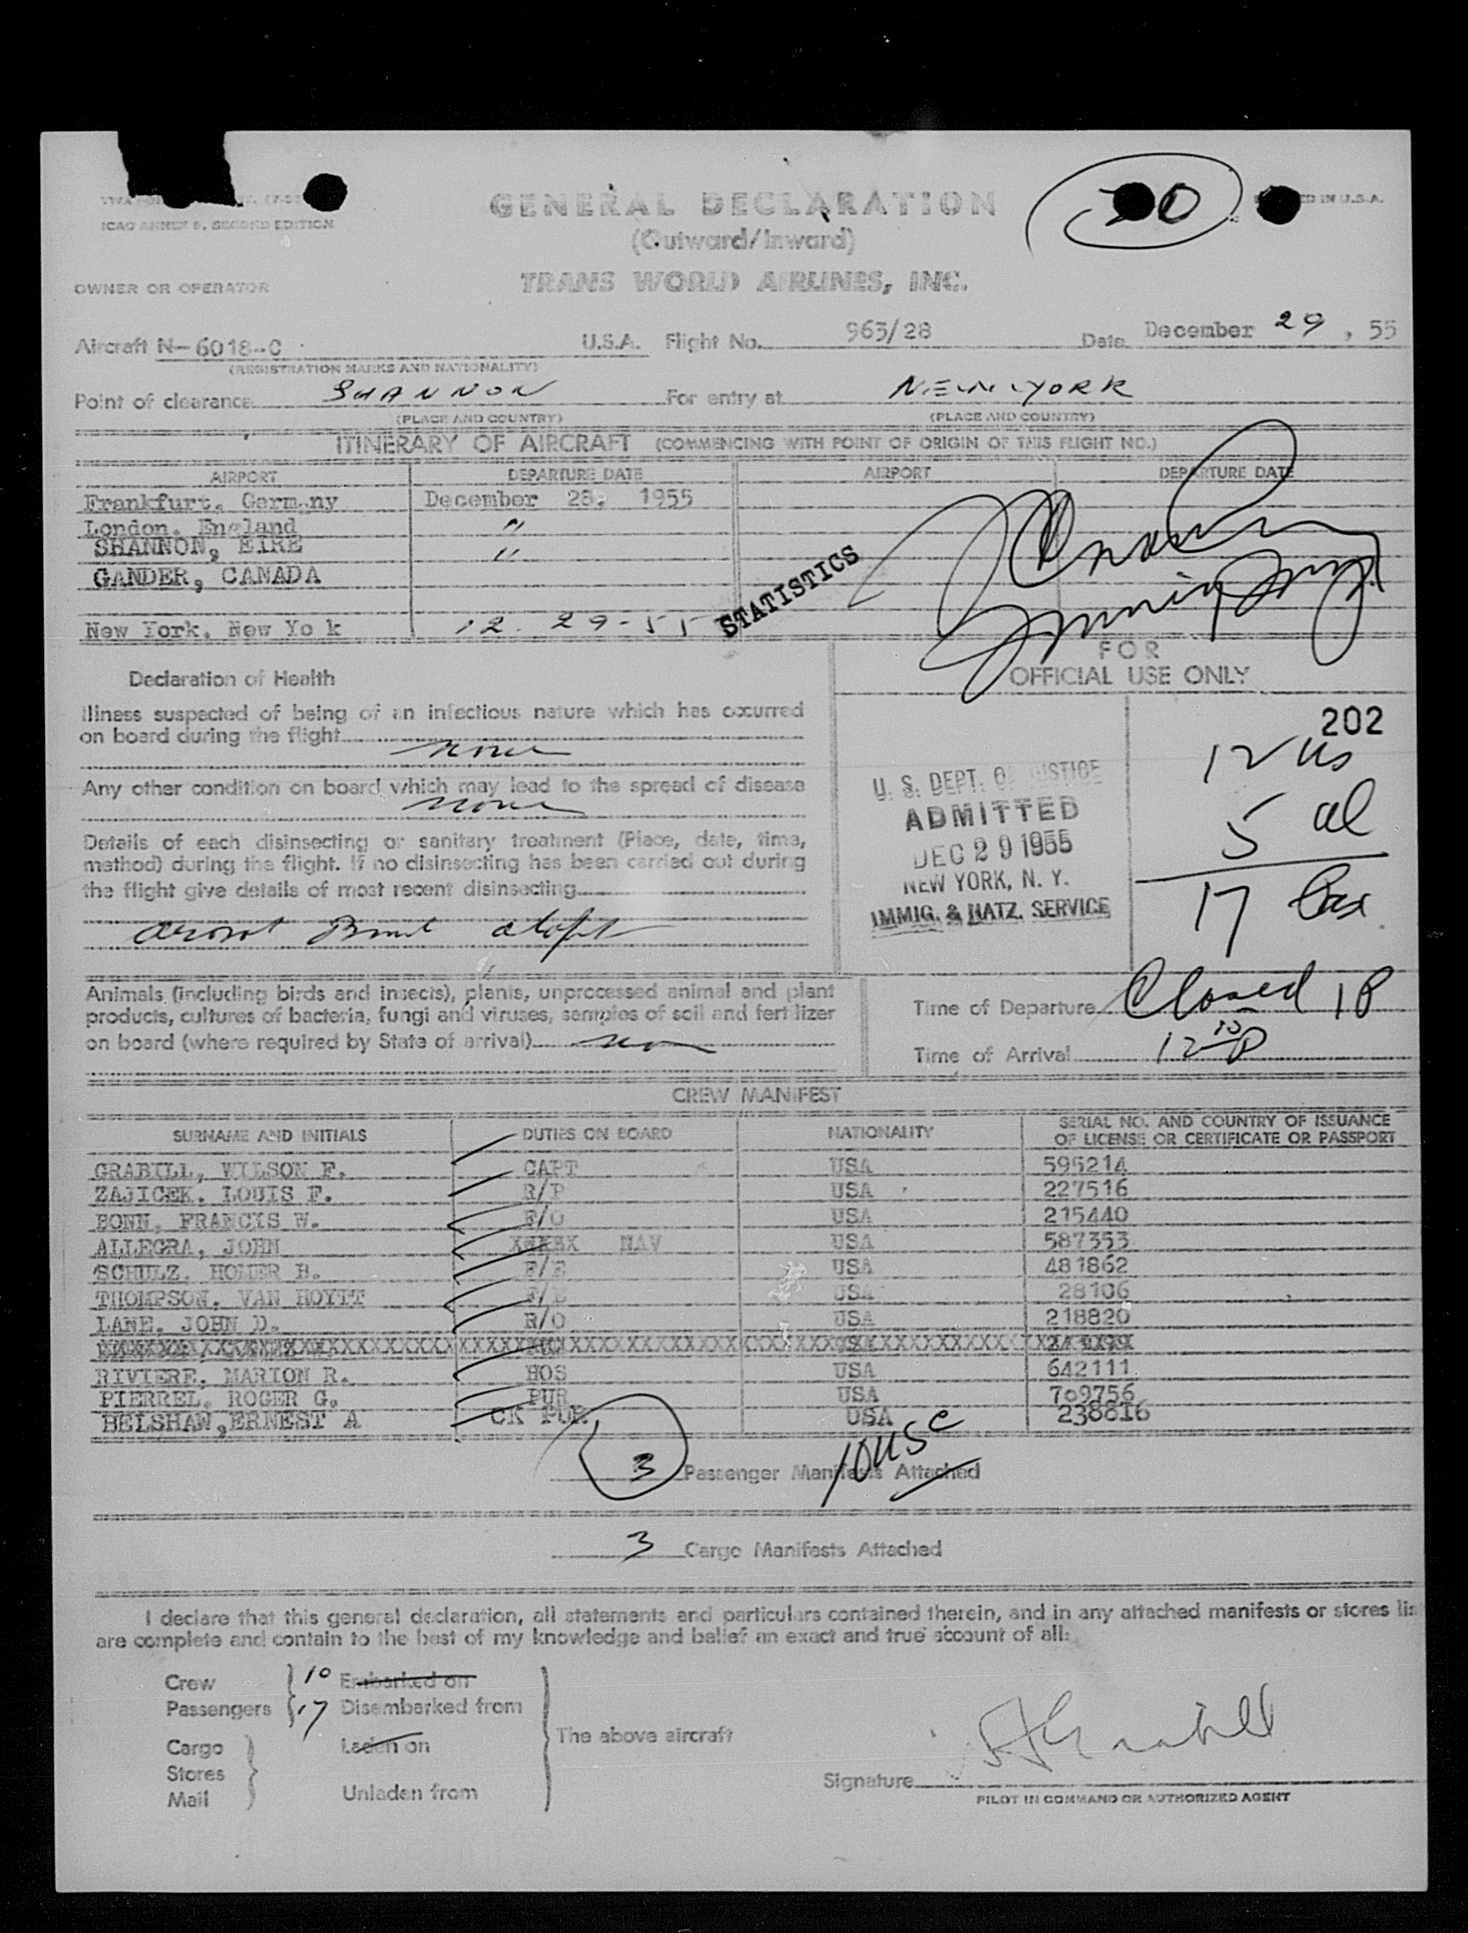 ICAO ANNEX 9, SECOND EDITION
GENERAL DECLARATION
(Outward/Inward)
TRANS WORLD AIRLINES, INC.
20
ED IN U.S.A.
OWNER OR OPERATOR
Aircraft N-6018-C U.S.A. Flight No. 963/28 Date December 29, 55
(REGISTRATION MARKS AND NATIONALITY)
Point of clearance SHANNON For entry at NEW YORK
(PLACE AND COUNTRY) (PLACE AND COUNTRY)
ITINERARY OF AIRCRAFT (COMMENCING WITH POINT OF ORIGIN OF THIS FLIGHT NO.)
AIRPORT DEPARTURE DATE AIRPORT DEPARTURE DATE
Frankfurt, Germ ny December 28, 1955
London, England "
SHANNON, EIRE "
GANDER, CANADA
New York, New Yo k 12-29-55
STATISTICS
Declaration of Health
Illness suspected of being of an infectious nature which has occurred
on board during the flight none
Any other condition on board which may lead to the spread of disease
none
Details of each disinsecting or sanitary treatment (Place, date, time,
method) during the flight. If no disinsecting has been carried out during
the flight give details of most recent disinsecting
FOR
OFFICIAL USE ONLY
202
U. S. DEPT. OF JUSTICE
ADMITTED
DEC 29 1955
NEW YORK, N. Y.
IMMIG. & NATZ. SERVICE
12 us
5 al
17 Pax
Animals (including birds and insects), plants, unprocessed animal and plant
products, cultures of bacteria, fungi and viruses, samples of soil and fertilizer
on board (where required by State of arrival)
Time of Departure Closed 1P
Time of Arrival 12 10 P
CREW MANIFEST
SURNAME AND INITIALS DUTIES ON BOARD NATIONALITY SERIAL NO. AND COUNTRY OF ISSUANCE
OF LICENSE OR CERTIFICATE OR PASSPORT
GRABILL, WILSON F. CAPT USA 595214
ZAJICEK, LOUIS F. R/P USA 227516
BONN, FRANCIS W. F/O USA 215440
ALLEGRA, JOHN NAV USA 587353
SCHULZ, HOMER B. F/E USA 481862
THOMPSON, VAN HOYTT F/E USA 28106
LANE, JOHN D. R/O USA 218820
RIVIERE, MARION R. HOS USA 642111
PIERREL, ROGER G. PUR USA 709756
BELSHAW,ERNEST A CK PUR USA 238816
3 Passenger Manifests Attached
10 USC
3 Cargo Manifests Attached
I declare that this general declaration, all statements and particulars contained therein, and in any attached manifests or stores lis
are complete and contain to the best of my knowledge and belief an exact and true account of all:
Crew 10 Embarked on
Passengers 17 Disembarked from
The above aircraft
Cargo Laden on
Stores
Mail Unladen from
Signature
PILOT IN COMMAND OR AUTHORIZED AGENT